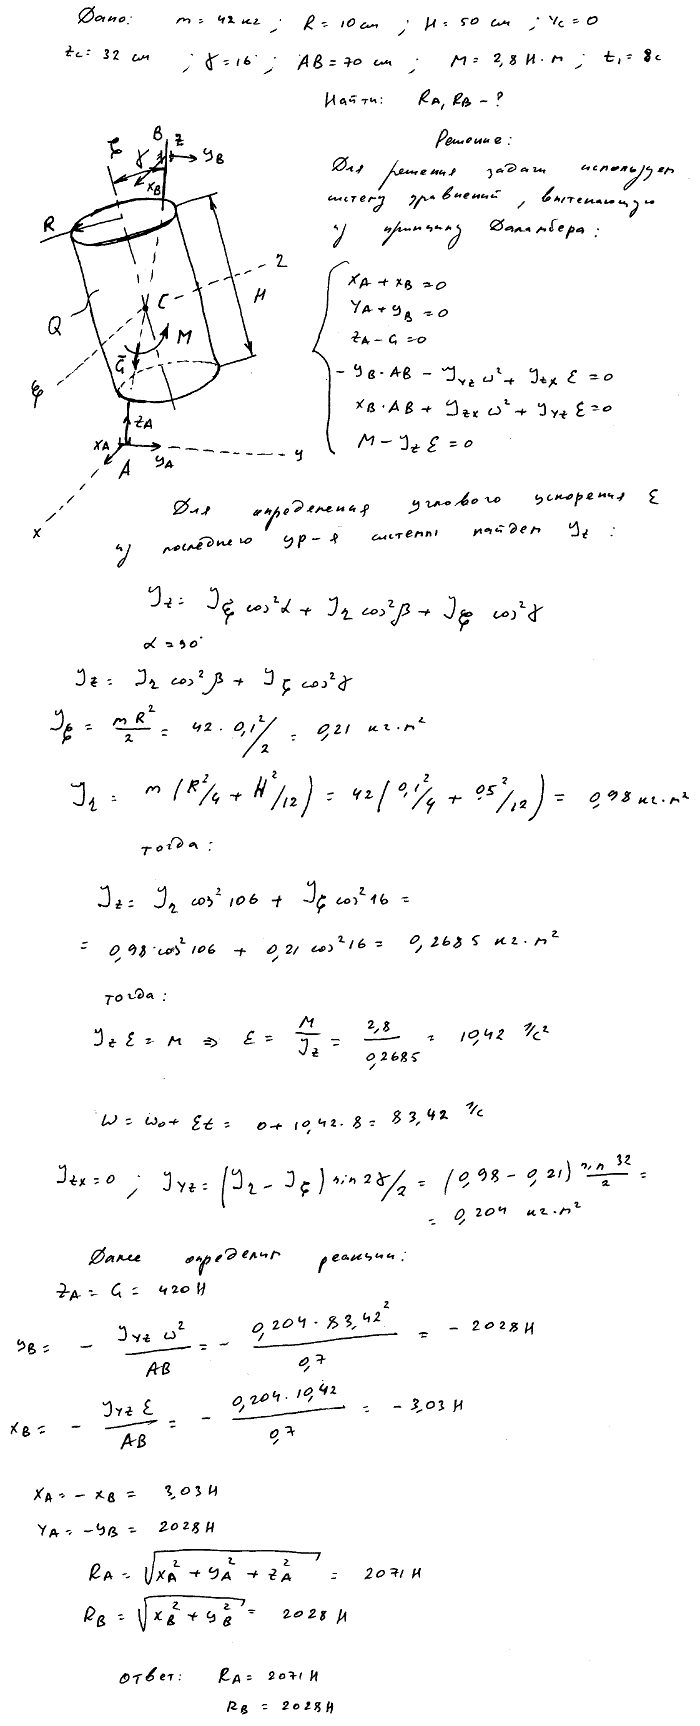 Дано: m = 42 кг ; R = 10 см ; H = 50 см ; Yc = 0
Zc = 32 см ; γ = 16° ; AB = 70 см ; M = 2,8 Н·м ; t₁ = 8с
Найти: RA, RB - ?
Решение:
Для решения задачи использует
систему уравнений, вытекающую
из принципа Даламбера:
XA + XB = 0
YA + YB = 0
ZA - G = 0
- YB·AB - Jyz ω² + Jzx ε = 0
XB·AB + Jzx ω² + Jyz ε = 0
M - Jz ε = 0
B
z
yB
xB
ζ
γ
R
C
η
H
Q
M
G
ξ
zA
xA
A
yA
y
x
Для определения углового ускорения ε
из последнего ур-я системы найдем Jz :
Jz = Jξ cos²α + Jη cos²β + Jζ cos²γ
α = 90°
Jz = Jη cos²β + Jζ cos²γ
Jζ = mR²/2 = 42·0,1²/2 = 0,21 кг·м²
Jη = m(R²/4 + H²/12) = 42(0,1²/4 + 0,5²/12) = 0,98 кг·м²
тогда:
Jz = Jη cos²106 + Jζ cos²16 =
= 0,98·cos²106 + 0,21 cos²16 = 0,2685 кг·м²
тогда:
Jz ε = M ⇒ ε = M/Jz = 2,8/0,2685 = 10,42 1/с²
ω = ω₀ + εt = 0 + 10,42·8 = 83,42 1/с
Jzx = 0 ; Jyz = (Jη - Jζ) sin2γ/2 = (0,98 - 0,21) sin 32/2 =
= 0,204 кг·м²
Далее определим реакции:
ZA = G = 420 Н
YB = - Jyz ω²/AB = - 0,204·83,42²/0,7 = - 2028 Н
XB = - Jyz ε/AB = - 0,204·10,42/0,7 = - 3,03 Н
XA = - XB = 3,03 Н
YA = - YB = 2028 Н
RA = √(XA² + YA² + ZA²) = 2071 Н
RB = √(XB² + YB²) = 2028 Н
Ответ: RA = 2071 Н
RB = 2028 Н